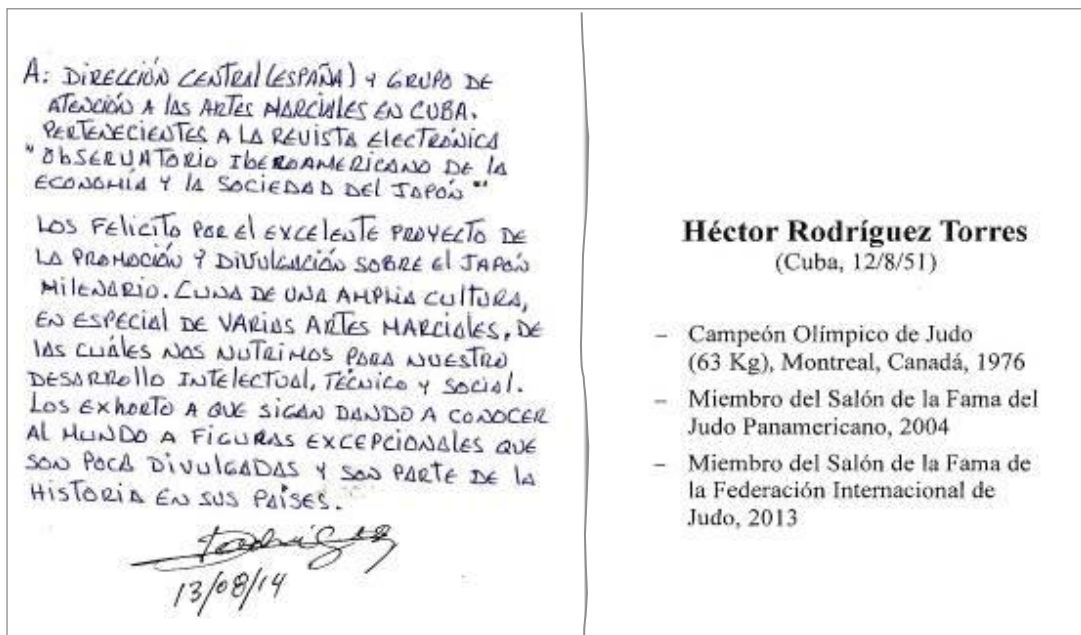 A: DIRECCIÓN CENTRAL (ESPAÑA) Y GRUPO DE
ATENCIÓN A LAS ARTES MARCIALES EN CUBA.
PERTENECIENTES A LA REVISTA ELECTRÓNICA
"OBSERVATORIO IBEROAMERICANO DE LA
ECONOMÍA Y LA SOCIEDAD DEL JAPÓN"
LOS FELICITO POR EL EXCELENTE PROYECTO DE
LA PROMOCIÓN Y DIVULGACIÓN SOBRE EL JAPÓN
MILENARIO. CUNA DE UNA AMPLIA CULTURA,
EN ESPECIAL DE VARIAS ARTES MARCIALES, DE
LAS CUÁLES NOS NUTRIMOS PARA NUESTRO
DESARROLLO INTELECTUAL, TÉCNICO Y SOCIAL.
LOS EXHORTO A QUE SIGAN DANDO A CONOCER
AL MUNDO A FIGURAS EXCEPCIONALES QUE
SON POCA DIVULGADAS Y SON PARTE DE LA
HISTORIA EN SUS PAÍSES.
13/08/14
Héctor Rodríguez Torres
(Cuba, 12/8/51)
– Campeón Olímpico de Judo
(63 Kg), Montreal, Canadá, 1976
– Miembro del Salón de la Fama del
Judo Panamericano, 2004
– Miembro del Salón de la Fama de
la Federación Internacional de
Judo, 2013